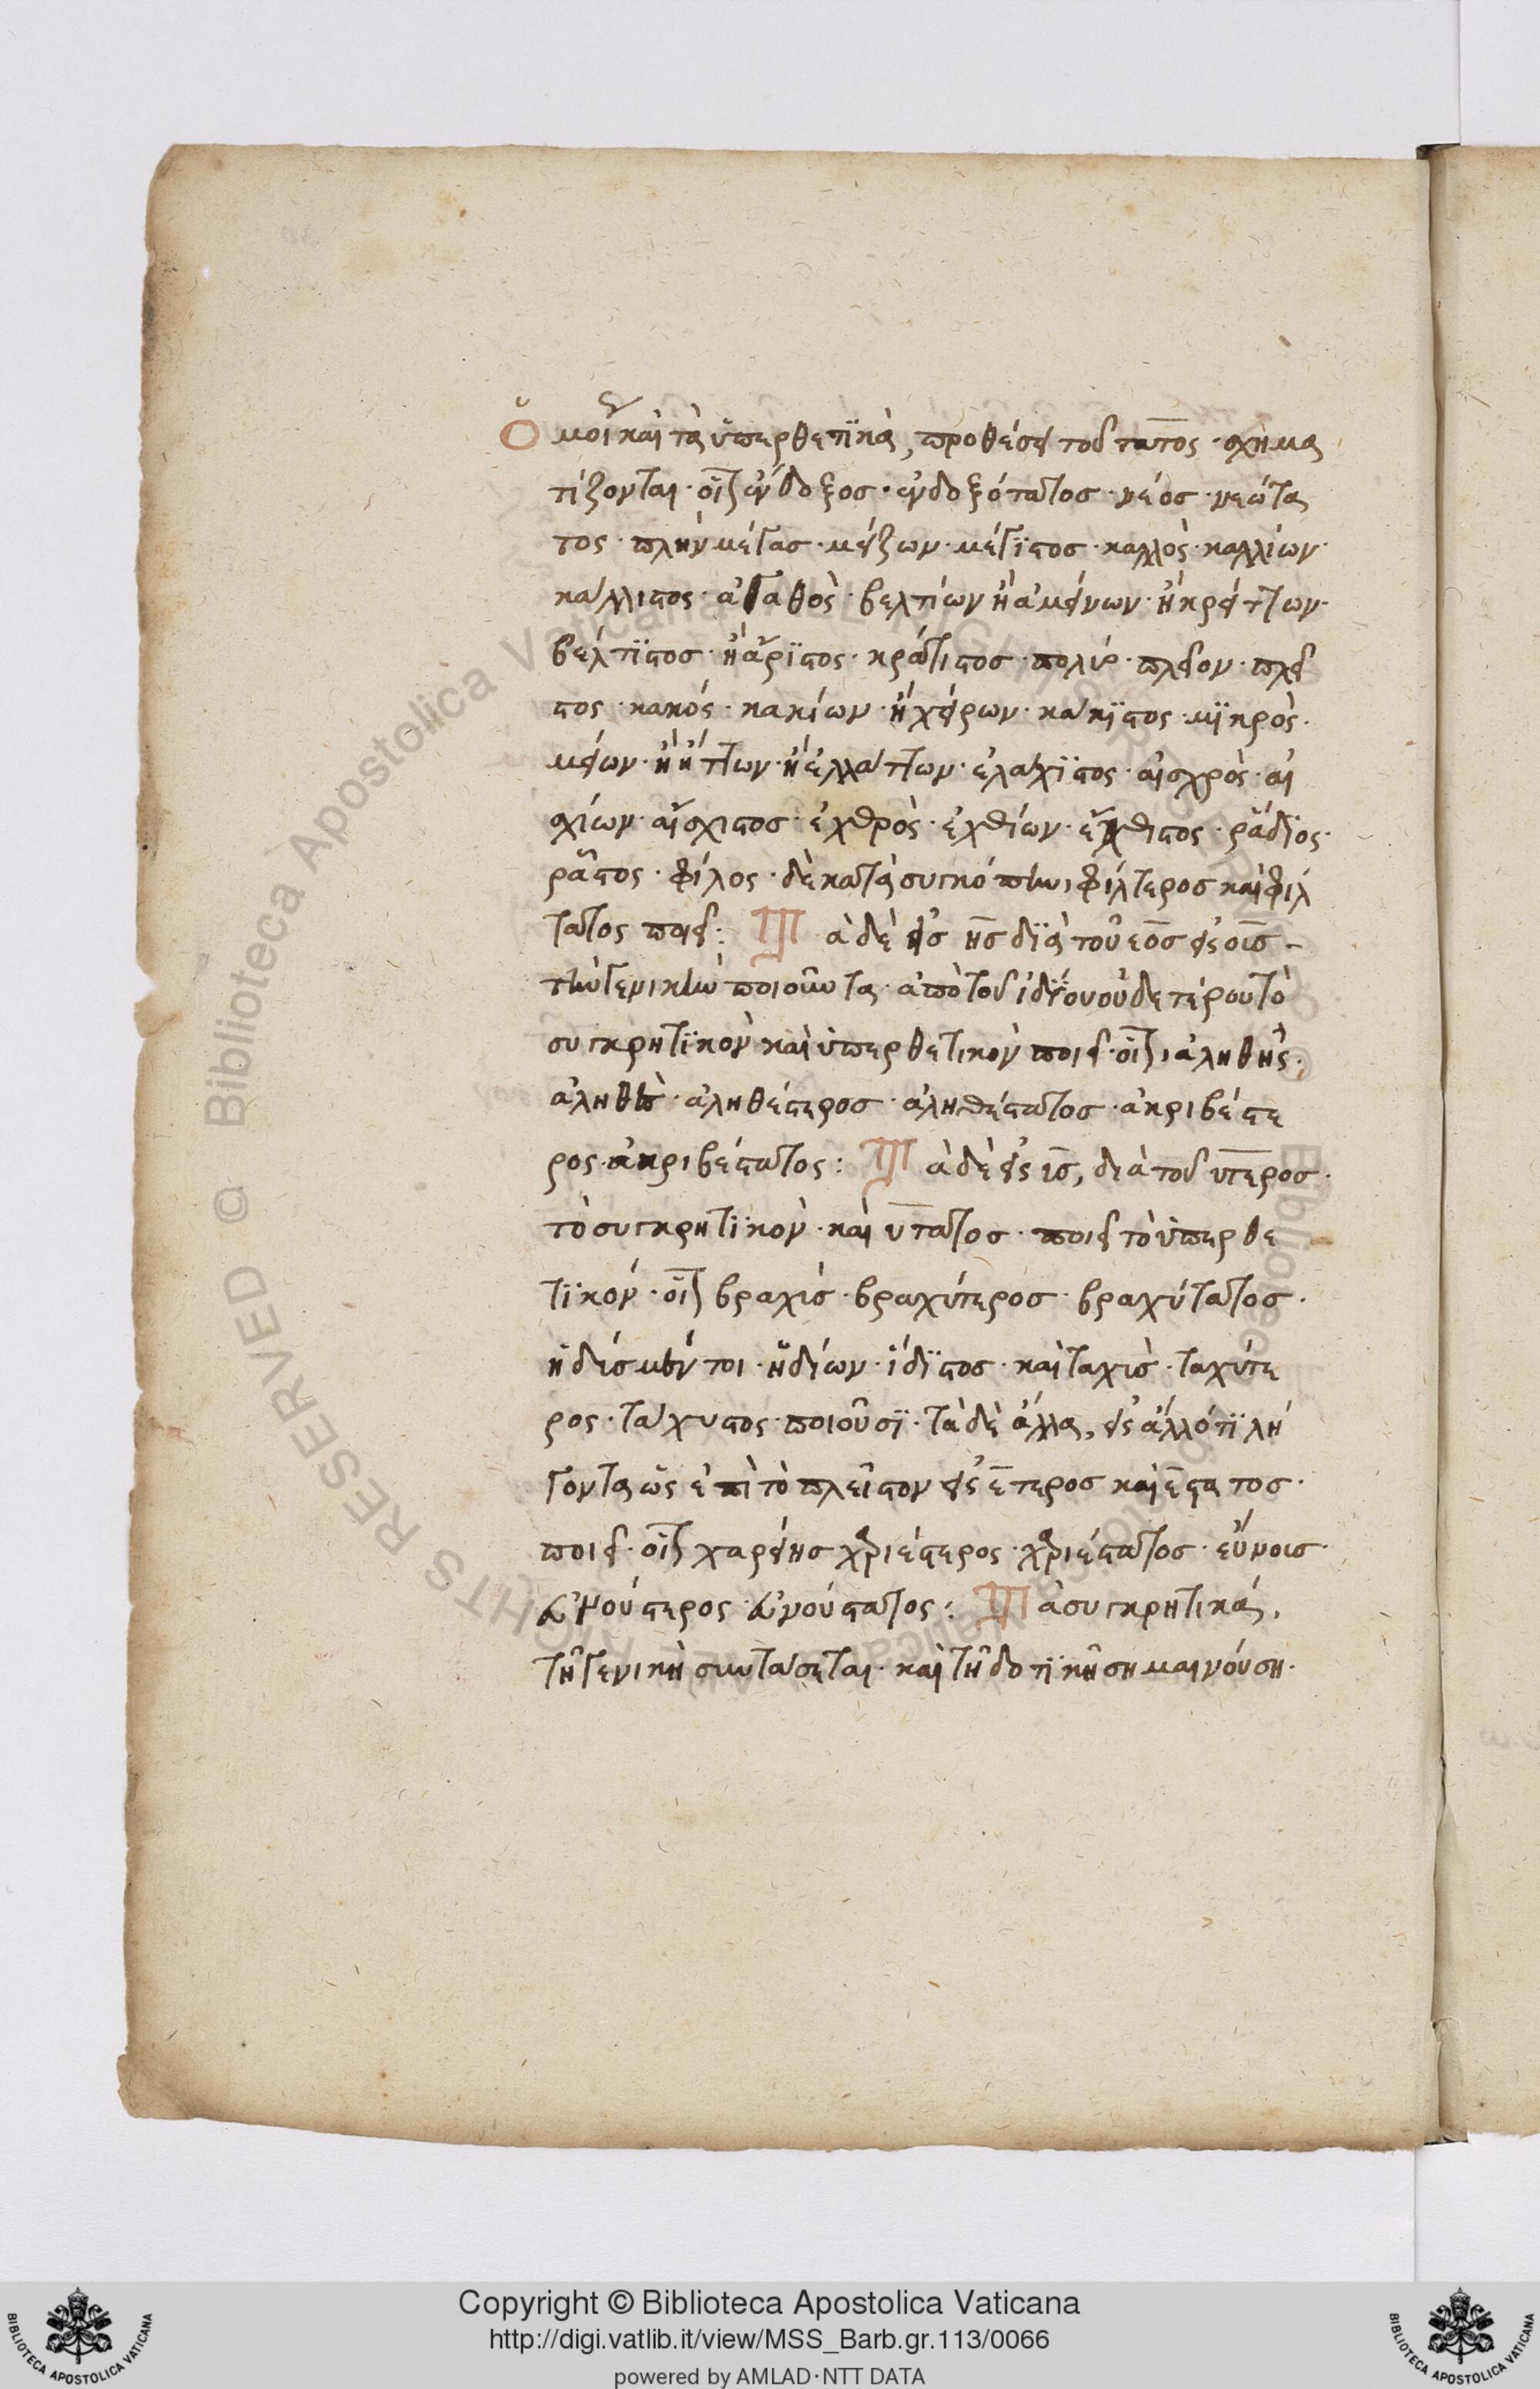 Ὁμοί καὶ τὰ ὑπερθετϊκὰ, προθέσει τοῦ τατος· σχημα
τίζονται· οἷ ἔνδοξος· ἐνδοξότατος· νέος· νεώτα
τος· πλὴν μέγας· μείζων· μέγϊστος· καλλὸς· καλλίων·
κάλλιστος· ἀγαθὸς· βελτίων ἢ ἀμείνων· ἢ κρείττων·
βέλτϊστος· ἢ ἄρϊστος· κράτιστος· πολύ· πλεῖον· πλεῖ
στος· κακός· κακίων· ἢ χείρων· κάκϊστος· μϊκρὸς·
μείων· ἢ ἥττων· ἢ ἐλλάττων· ἐλάχϊστος· αἰσχρὸς· αἰ
σχίων· αἴσχιστος· ἐχθρὸς· ἐχθίων· ἔχθιστος· ῥάδϊος·
ῥᾶστος· φίλος· δὲ κατὰ συγκόπην φίλτερος καὶ φίλ
τατος ποιεῖ: Τὰ δὲ εἰς ης διὰ τοῦ εος εἰς οις
τὴν γενικὴν ποιοῦντα· ἀπὸ τοῦ ἰδΐου οὐδετέρου τὸ
συγκρητϊκὸν καὶ ὑπερθετικὸν ποιεῖ· οἷ ἀληθής·
ἀληθὲς· ἀληθέστερος· ἀληθέστατος· ἀκριβέστε
ρος· ἀκριβέστατος: Τὰ δὲ εἰς ις, διὰ τοῦ υτερος·
τὸ συγκρητϊκὸν· καὶ υτατος· ποιεῖ τὸ ὑπερθε
τϊκόν· οἷ βραχὶς· βραχύτερος· βραχύτατος·
ἡδίς μέν τοι· ἡδίων· ἵδϊστος· καὶ ταχὶς· ταχύτε
ρος· τάχυστος· ποιοῦσϊ· τὰ δὲ ἄλλα, εἰς ἄλλό τϊ λή
γοντα ὡς ἐπὶ τὸ πλεῖστον εἰς έστερος καὶ έστατος·
ποιεῖ· οἷ χαρείης χαριέστερος· χαριέστατος· εὔνοις·
εὐνούστερος· εὐνούστατος: Τὰ συγκρητικά,
τῇ γενικὴ συντάσεται· καὶ τῇ δοτϊκῆ σημαινούση·
Biblioteca Apostolica Vaticana
Copyright © Biblioteca Apostolica Vaticana
http://digi.vatlib.it/view/MSS_Barb.gr.113/0066
powered by AMLAD·NTT DATA